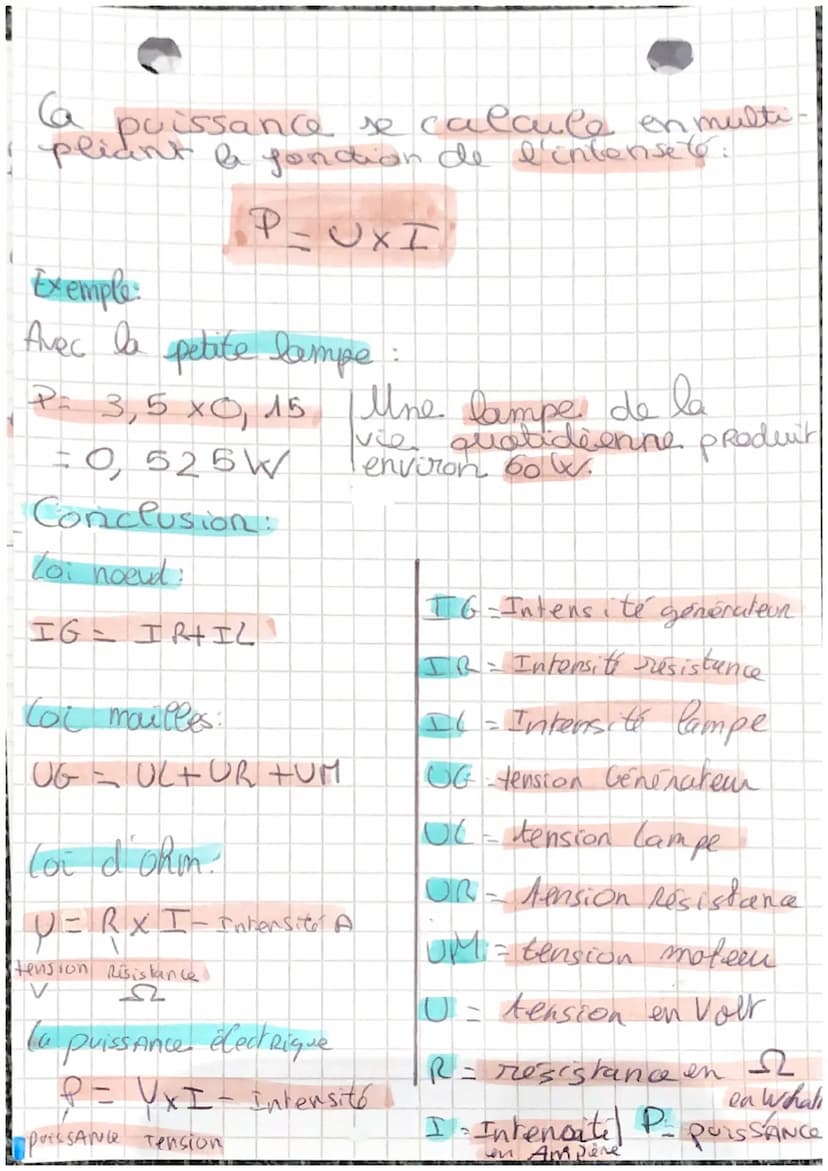 La puissance se calcule en multi-
pliant la fonction de l'intenseté :
P = U x I
Exemple:
Avec la petite lampe :
P= 3,5 x0,15
= 0,525W
Une lampe de la
vie quotidiénne produit
environ 60 W.
Conclusion:
Loi noeud:
IG = IR+IL
Loi mailles:
UG = UL+UR+UM
Loi d'ohm:
U = R x I - Intensité A
tension résistance
V Ω
La puissance électrique
P = U x I - Intensité
puissance Tension
IG = Intensité générateur
IR = Intensité résistance
IL = Intensité lampe
UG = tension Générateur
UL = tension lampe
UR = tension Résistance
UM = tension moteur
U = tension en Volt
R = résistance en Ω
I = Intensité en Ampère
P = puissance en Whatt